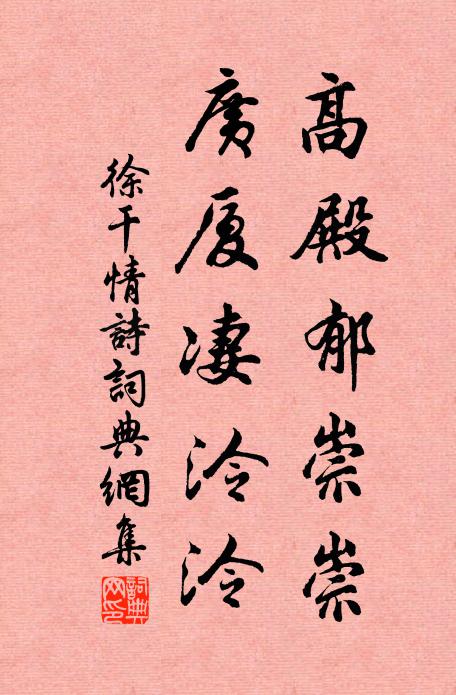 高殿郁崇崇
廣厦凄泠泠
徐干情詩詞典網集
詞典
网印